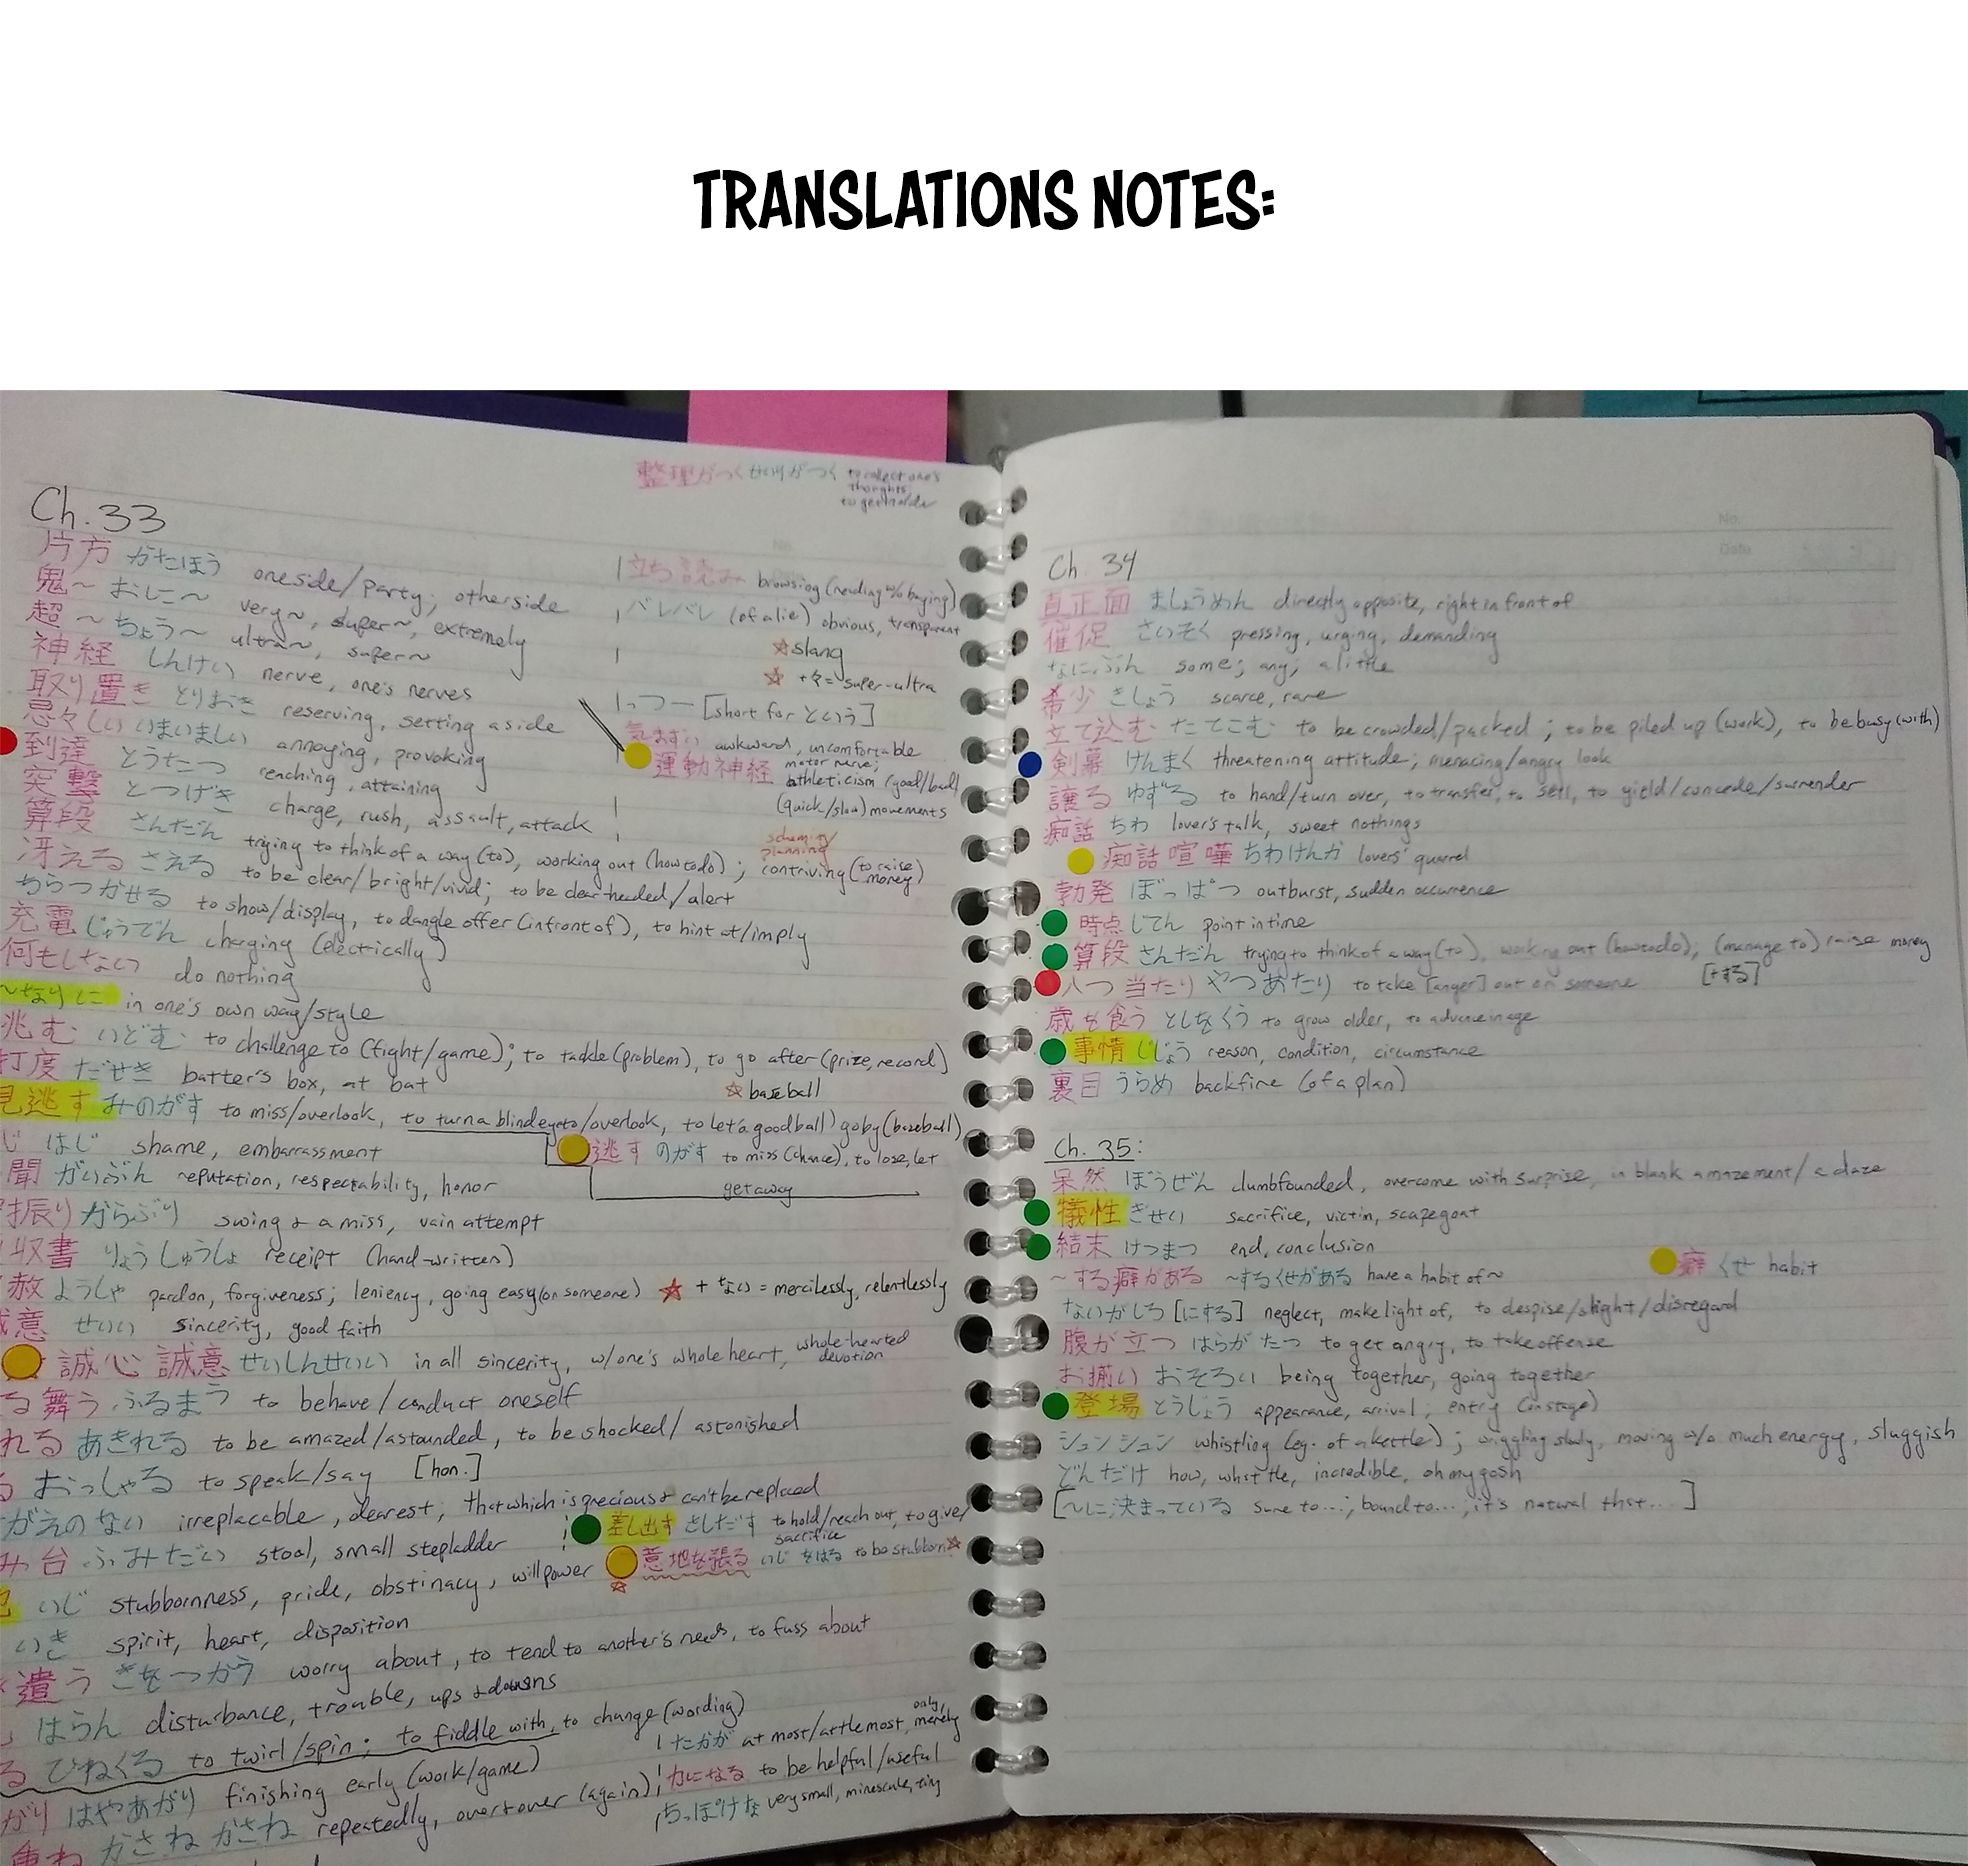 TRANSLATIONS NOTES:
整理がつく せいりがつく to collect one's thoughts,
Ch. 33
片方 かたほう one side/party; other side
鬼~ おに~ very~, super~, extremely
超~ ちょう~ ultra~, super~
神経 しんけい nerve, one's nerves
取り置き とりおき reserving, setting aside
忌々しい いまいましい annoying, provoking
到達 とうたつ reaching, attaining
突撃 とつげき charge, rush, assault, attack
算段 さんだん trying to think of a way (to), working out (how to do); contriving (to raise money)
scheming/planning
冴える さえる to be clear/bright/vivid; to be clear-headed/alert
ちらつかせる to show/display, to dangle offer (in front of), to hint at/imply
充電 じゅうでん charging (electrically)
何もしない do nothing
~なりに in one's own way/style
挑む いどむ to challenge to (fight/game); to tackle (problem), to go after (prize, record)
打度 だせき batter's box, at bat
☆ baseball
見逃す みのがす to miss/overlook, to turn a blind eye to/overlook, to let a good ball go by (baseball)
逃す のがす to miss (chance), to lose, let get away
じ はじ shame, embarrassment
聞 がいぶん reputation, respectability, honor
振り からぶり swing & a miss, vain attempt
収書 りょうしゅうしょ receipt (hand-written)
赦 ようしゃ pardon, forgiveness; leniency, going easy (on someone) ☆ + ない = mercilessly, relentlessly
意 せいい sincerity, good faith
誠心誠意 せいしんせいい in all sincerity, w/one's whole heart, whole-hearted devotion
る舞う ふるまう to behave/conduct oneself
れる あきれる to be amazed/astounded, to be shocked/astonished
る おっしゃる to speak/say [hon.]
がえのない irreplacable, dearest; that which is precious & can't be replaced
差し出す さしだす to hold/reach out, to give/sacrifice
み台 ふみだい stool, small stepladder
意地を張る いじをはる to be stubborn ☆
いじ stubbornness, pride, obstinacy, willpower
いき spirit, heart, disposition
遣う きをつかう worry about, to tend to another's needs, to fuss about
はらん disturbance, trouble, ups & downs
る ひねくる to twirl/spin; to fiddle with, to change (wording)
がり はやあがり finishing early (work/game)
重ね かさねかさね repeatedly, over & over (again)
立ち読み browsing (reading w/o buying)
バレバレ (of a lie) obvious, transparent
☆ slang
☆ +々= super-ultra
っつー [short for という]
気まずい awkward, uncomfortable
運動神経 motor nerve; athleticism (good/bad) (quick/slow) movements
たかが at most/at the most, only, merely
力になる to be helpful/useful
ちっぽけな very small, minescule, tiny
No.
Date
Ch. 34
真正面 ましょうめん directly opposite, right in front of
催促 さいそく pressing, urging, demanding
なにぶん some; any; a little
希少 きしょう scarce, rare
立て込む たてこむ to be crowded/packed; to be piled up (work), to be busy (with)
剣幕 けんまく threatening attitude; menacing/angry look
譲る ゆずる to hand/turn over, to transfer, to sell, to yield/concede/surrender
痴話 ちわ lover's talk, sweet nothings
痴話喧嘩 ちわけんか lovers' quarrel
勃発 ぼっぱつ outburst, sudden occurrence
時点 じてん point in time
算段 さんだん trying to think of a way (to), working out (how to do); (manage to) raise money
[+する]
八つ当たり やつあたり to take [anger] out on someone
歳を食う としをくう to grow older, to advance in age
事情 じじょう reason, condition, circumstance
裏目 うらめ backfire (of a plan)
Ch. 35:
呆然 ぼうぜん dumbfounded, overcome with surprise, in blank amazement/a daze
犠牲 ぎせい sacrifice, victim, scapegoat
結末 けつまつ end, conclusion
癖 くせ habit
~する癖がある ~するくせがある have a habit of~
ないがしろ [にする] neglect, make light of, to despise/slight/disregard
腹が立つ はらがたつ to get angry, to take offense
お揃い おそろい being together, going together
登場 とうじょう appearance, arrival; entry (on stage)
シュンシュン whistling (eg. of a kettle); wriggling slowly, moving w/o much energy, sluggish
どんだけ how, what the, incredible, oh my gosh
[~に決まっている sure to...; bound to...; it's natural that...]